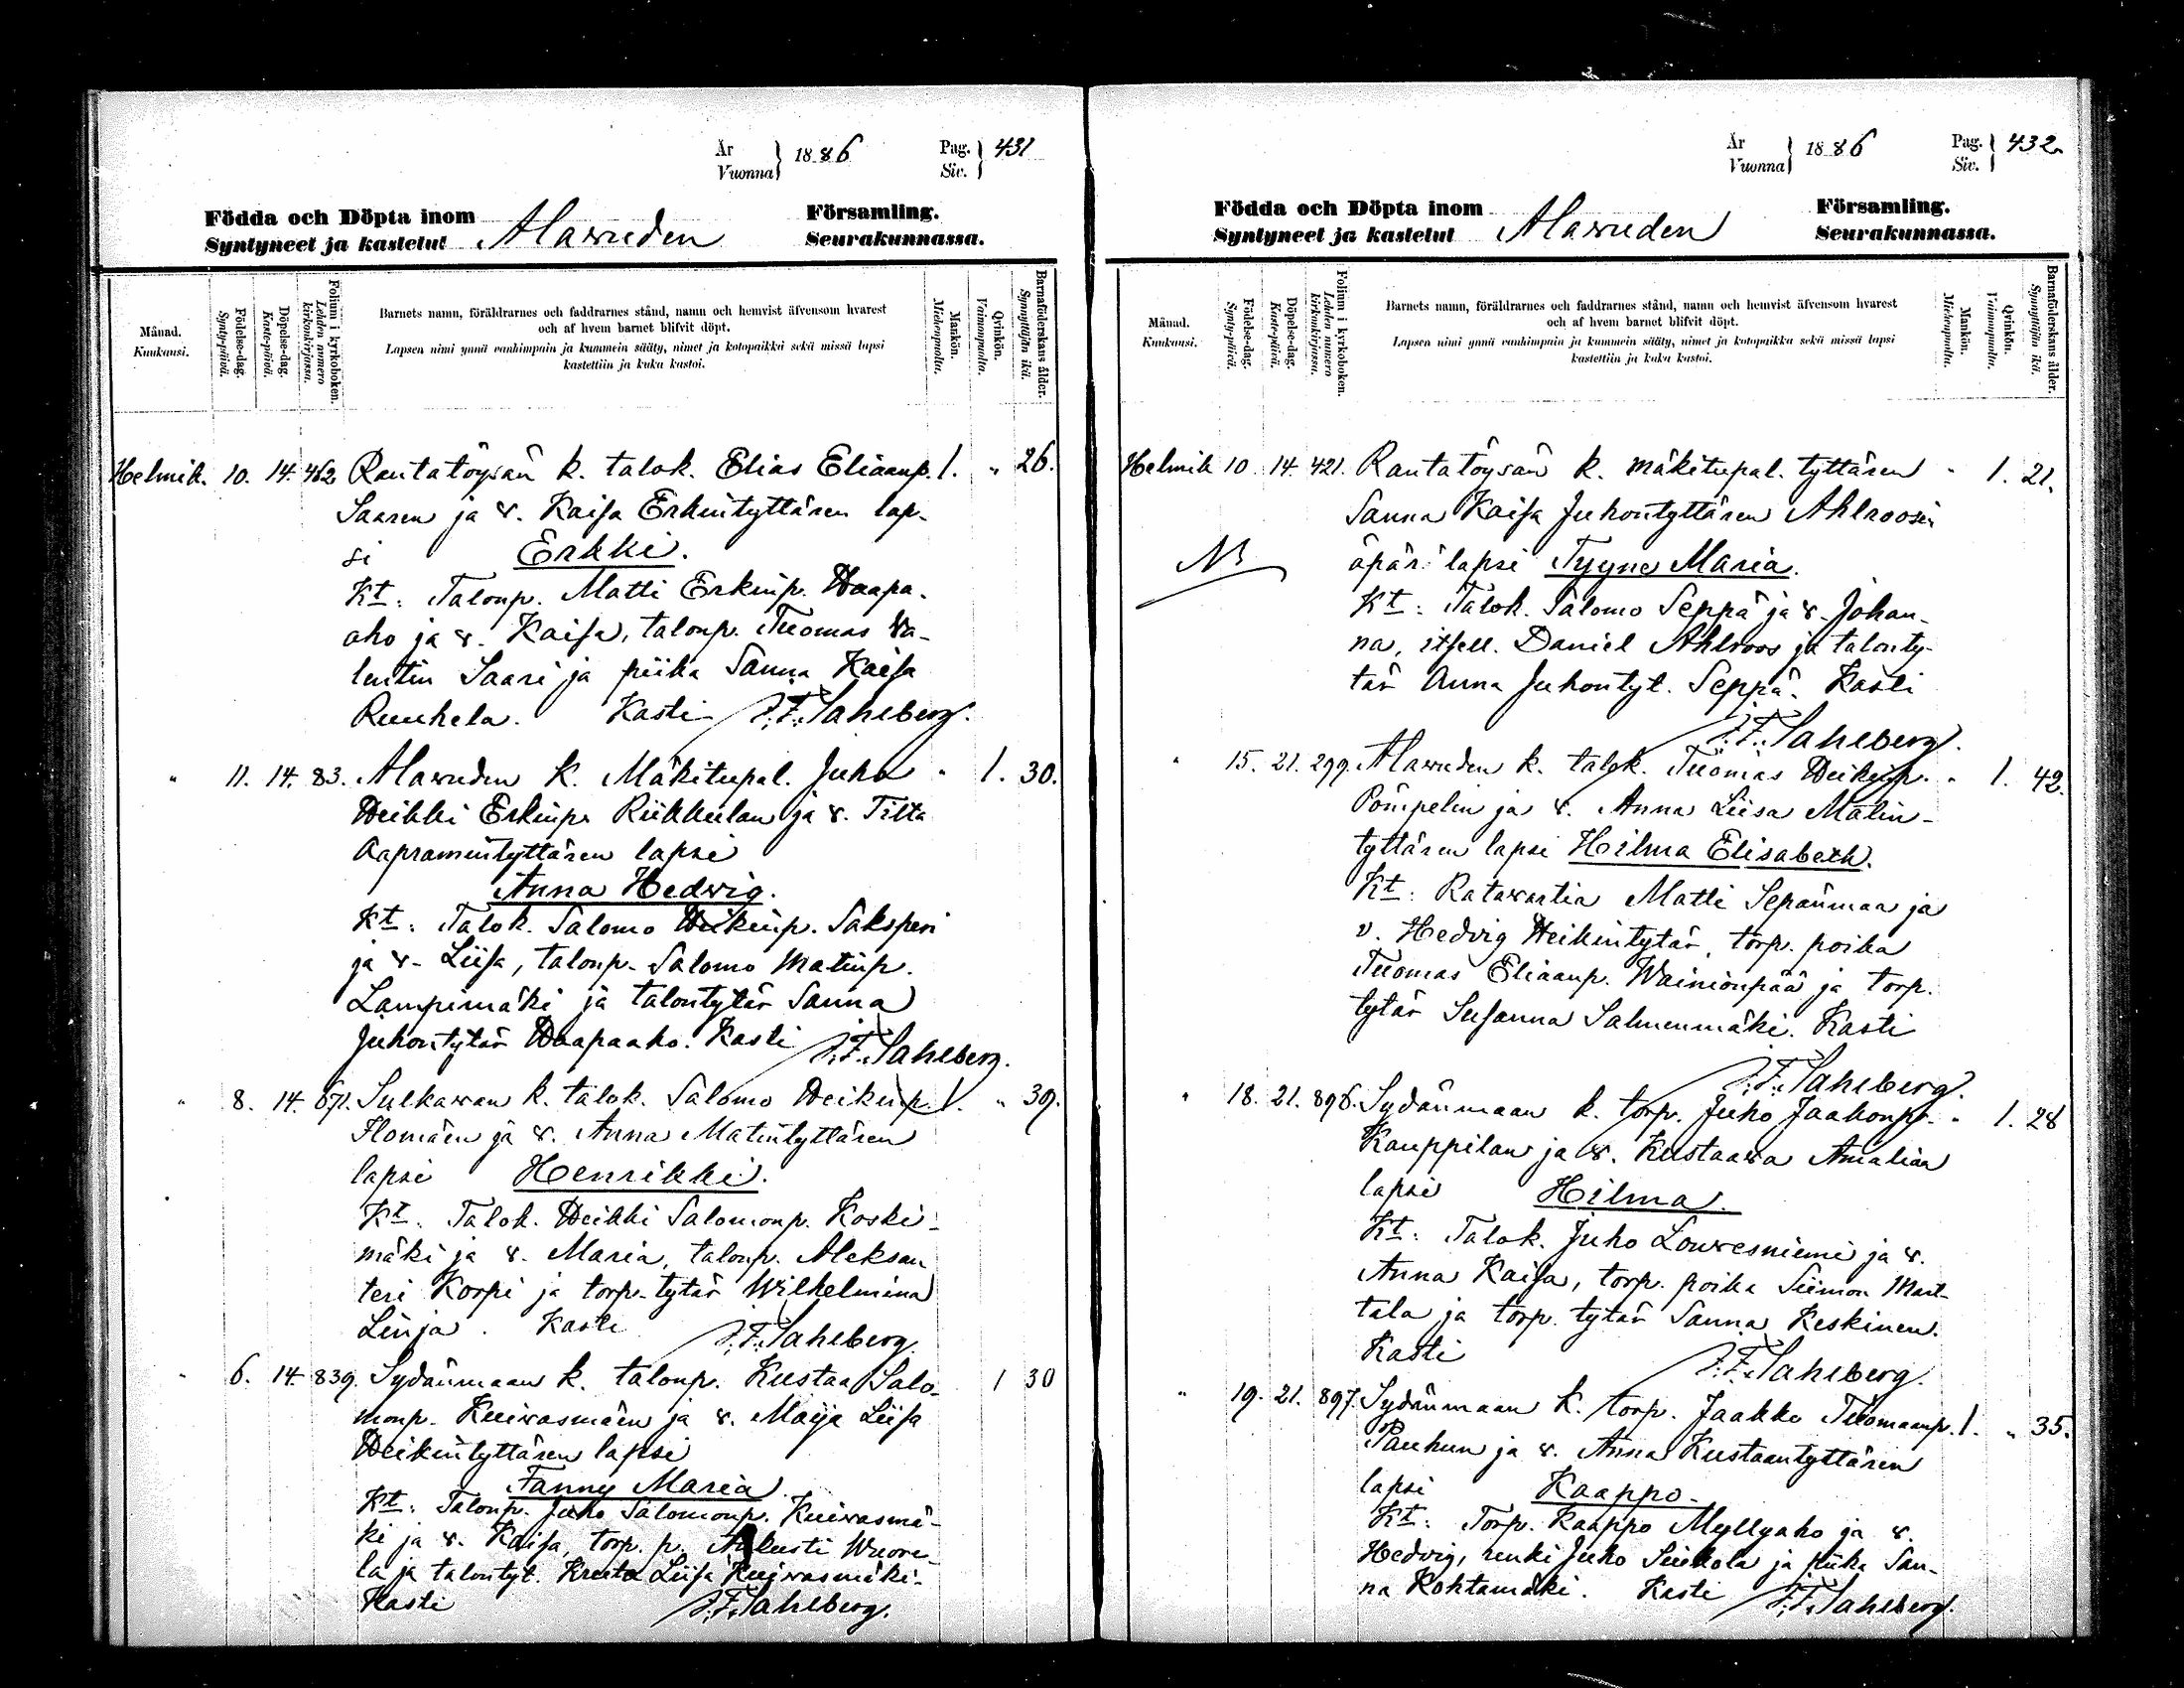 År
Vuonna } 1886 Pag.
Siv. } 431
Födda och Döpta inom Församling.
Syntyneet ja kastetut Alavuden Seurakunnassa.
Månad.
Kuukausi.
Födelse-dag.
Synty-päivä.
Döpelse-dag.
Kaste-päivä.
Folium i kyrkoboken.
Lehden numero kirkonkirjassa.
Barnets namn, föräldrarnes och faddrarnes stånd, namn och hemvist äfvensom hvarest
och af hvem barnet blifvit döpt.
Lapsen nimi ynnä vanhimpain ja kummein sääty, nimet ja kotopaikka sekä missä lapsi
kastettiin ja kuka kastoi.
Mankön.
Miehenpuolta.
Qvinkön.
Vaimonpuolta.
Barnaföderskans ålder.
Synnyttäjän ikä.
Helmik. 10. 14. 462. Rantatöysän k. talok. Elias Eliaanp. 1. " 26.
Saaren ja v. Kaisa Erkintyttären lap-
si Erkki.
Kt: Talonp. Matti Erkinp. Haapa-
aho ja v. Kaisa, talonp. Tuomas Wa-
lentin Saari ja piika Sanna Kaisa
Ruuhela. Kasti J.F. Sahlberg.
" 11. 14. 83. Alavuden k. Mäkitupal. Juho " 1. 30.
Heikki Erkinp. Riikkulan ja v. Tilta
Aapramintyttären lapsi
Anna Hedwig.
Kt: Talok. Salomo Heikinp. Saksperi
ja v. Liisa, talonp. Salomo Matinp.
Lampimäki ja talontytär Sanna
Juhontytär Haapaaho. Kasti J.F. Sahlberg.
" 8. 14. 671. Sulkavan k. talok. Salomo Heikinp. 1. " 39.
Ilomäen ja v. Anna Matintyttären
lapsi Henrikki.
Kt: Talok. Heikki Salomonp. Koski-
mäki ja v. Maria, talonp. Aleksan
teri Korpi ja torp. tytär Wilhelmina
Linja. Kasti J.F. Sahlberg.
" 6. 14. 839. Sydänmaan k. talonp. Kustaa Salo- 1 30
monp. Kuivasmäen ja v. Maija Liisa
Heikintyttären lapsi
Fanny Maria
Kt: Talonp. Juho Salomonp. Kuivasmä-
ki ja v. Kaisa, torp. p. Aukusti Wuore-
la ja talontyt. Kreeta Liisa Kuivasmäki.
Kasti J.F. Sahlberg.
År
Vuonna } 1886 Pag.
Siv. } 432
Födda och Döpta inom Församling.
Syntyneet ja kastetut Alavuden Seurakunnassa.
Månad.
Kuukausi.
Födelse-dag.
Synty-päivä.
Döpelse-dag.
Kaste-päivä.
Folium i kyrkoboken.
Lehden numero kirkonkirjassa.
Barnets namn, föräldrarnes och faddrarnes stånd, namn och hemvist äfvensom hvarest
och af hvem barnet blifvit döpt.
Lapsen nimi ynnä vanhimpain ja kummein sääty, nimet ja kotopaikka sekä missä lapsi
kastettiin ja kuka kastoi.
Mankön.
Miehenpuolta.
Qvinkön.
Vaimonpuolta.
Barnaföderskans ålder.
Synnyttäjän ikä.
Helmik 10. 14. 421. Rantatöysän k. mäkitupal. tyttären " 1. 21.
Sanna Kaisa Juhontyttären Ahlroosin
NB äpär. lapsi Tyyne Maria.
Kt: Talok. Salomo Seppä ja v. Johan-
na, itsell. Daniel Ahlroos ja talonty-
tär Anna Juhontyt. Seppä. Kasti
J.F. Sahlberg.
" 15. 21. 299. Alavuden k. talok. Tuomas Heikinp. " 1. 42.
Pömpelin ja v. Anna Liisa Matin-
tyttären lapsi Hilma Elisabeth.
Kt: Ratavartia Matti Sepänmaa ja
v. Hedvig Heikintytär, torp. poika
Tuomas Eliaanp. Wainionpää ja torp.
tytär Susanna Salmenmäki. Kasti
J.F. Sahlberg.
" 18. 21. 896. Sydänmaan k. torp. Juho Jaakonp. " 1. 28
Kauppilan ja v. Kustaava Amalian
lapsi Hilma.
Kt: Talok. Juho Louvesniemi ja v.
Anna Kaisa, torp. poika Siimon Mart-
tala ja torp. tytär Sanna Keskinen.
Kasti J.F. Sahlberg.
" 19. 21. 897. Sydänmaan k. torp. Jaakko Tuomaanp. 1. " 35.
Pauhun ja v. Anna Kustaantyttären
lapsi Kaappo.
Kt: Torp. Kaappo Myllyaho ja v.
Hedvig, renki Juho Siukola ja piika San-
na Kohtamäki. Kasti J.F. Sahlberg.